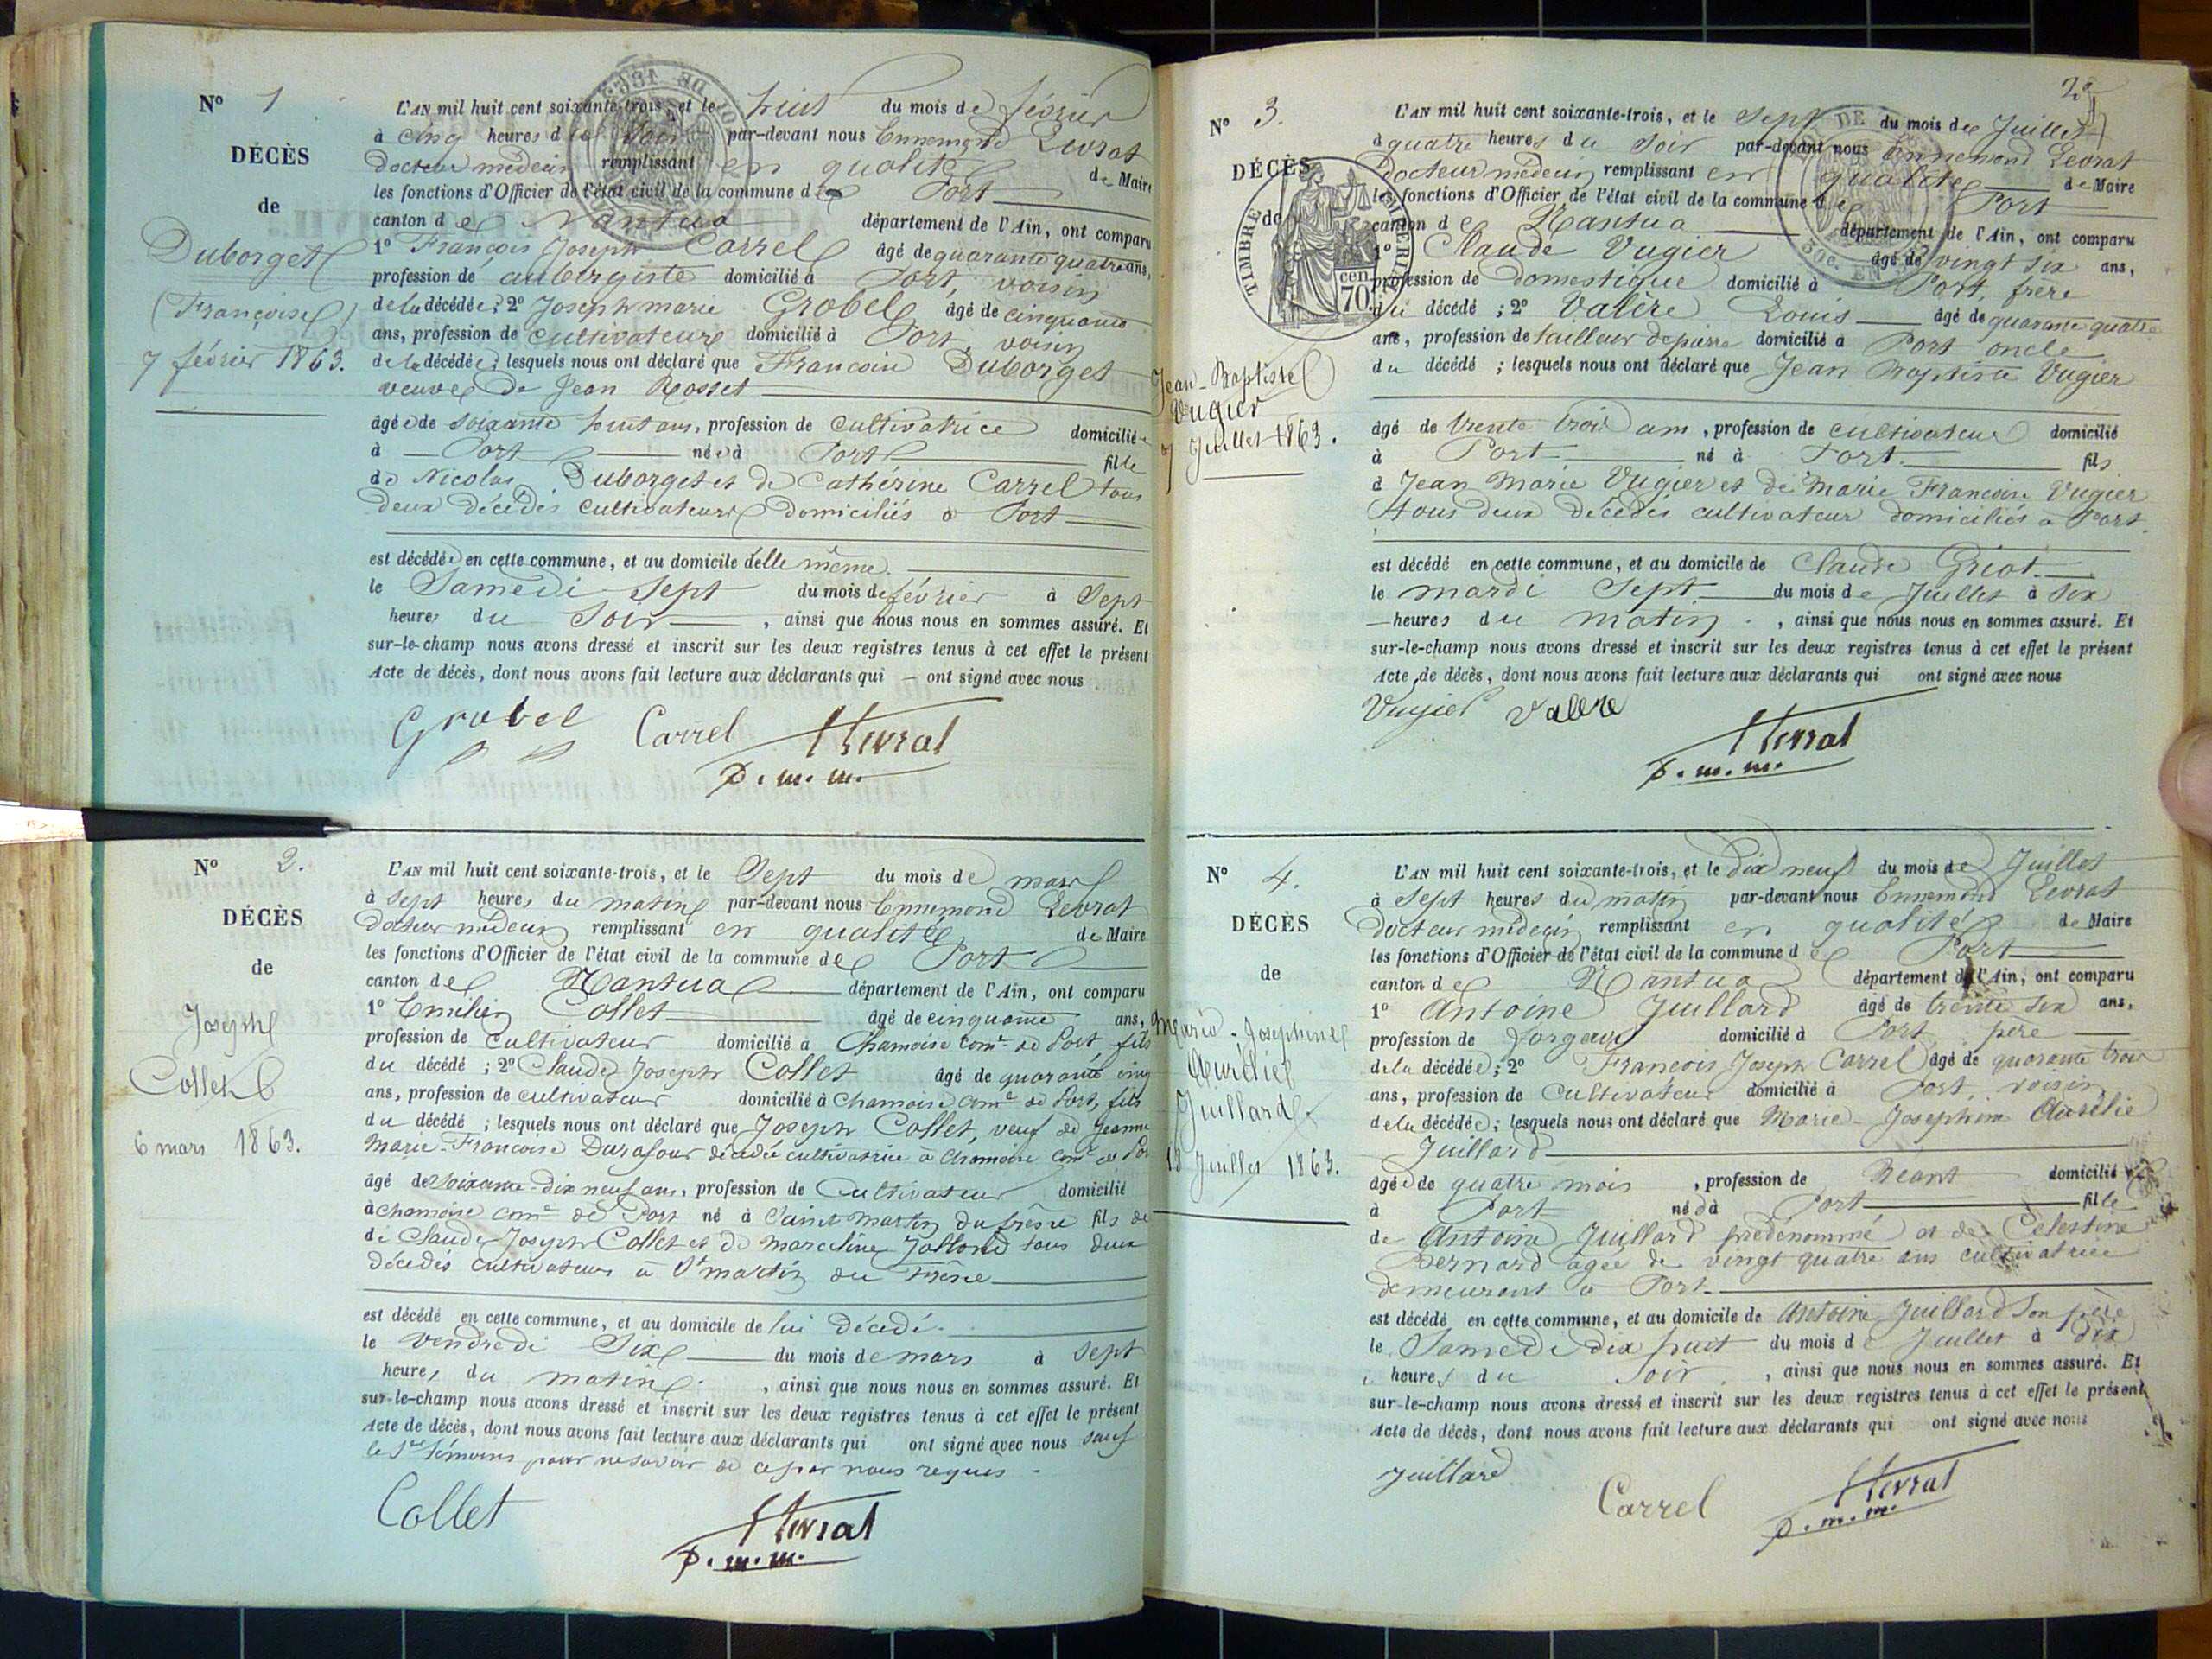 N° 1
DÉCÈS
de
Duborget
(Françoise)
7 février 1863.
L'AN mil huit cent soixante-trois, et le huit du mois de février
à cinq heures du soir par-devant nous Ennemond Levrat
docteur médecin remplissant en qualité de Maire
les fonctions d'Officier de l'état civil de la commune de Port
canton de Nantua département de l'Ain, ont comparu
1° François Joseph Carrel âgé de quarante quatre ans,
profession de aubergiste domicilié à Port, voisin
de la décédée; 2° Joseph marie Grobel âgé de cinquante
ans, profession de cultivateur domicilié à Port, voisin
de la décédée; lesquels nous ont déclaré que Francoise Duborget
veuve de Jean Rosset
âgée de soixante huit ans, profession de cultivatrice domiciliée
à Port née à Port fille
de Nicolas Duborget et de Cathérine Carrel tous
deux décédés cultivateurs domiciliés à Port
est décédée en cette commune, et au domicile d'elle même.
le Samedi Sept du mois de février à Sept
heures du Soir, ainsi que nous nous en sommes assuré. Et
sur-le-champ nous avons dressé et inscrit sur les deux registres tenus à cet effet le présent
Acte de décès, dont nous avons fait lecture aux déclarants qui ont signé avec nous
Grobel Carrel Levrat
D. m. m.
N° 2.
DÉCÈS
de
Joseph
Collet
6 mars 1863.
L'AN mil huit cent soixante-trois, et le Sept du mois de mars
à Sept heures du matin par-devant nous Ennemond Levrat
docteur médecin remplissant en qualité de Maire
les fonctions d'Officier de l'état civil de la commune de Port
canton de Nantua département de l'Ain, ont comparu
1° Emilien Collet âgé de cinquante ans,
profession de cultivateur domicilié à Chamoise com.ne de Port, fils
du décédé; 2° Claude Joseph Collet âgé de quarante cinq
ans, profession de cultivateur domicilié à Chamoise com.ne de Port, fils
du décédé; lesquels nous ont déclaré que Joseph Collet, veuf de Jeanne
Marie-Francoise Durafour décédée cultivatrice à Chamoise com.ne de Port
âgé de soixante-dix neuf ans, profession de Cultivateur domicilié
à chamoise com.ne de Port né à Saint martin du frêsne fils de
de Claude Joseph Collet et de marceline Jolland tous deux
décédés cultivateurs à St martin du Frêsne
est décédé en cette commune, et au domicile de lui décédé.
le Vendredi Six du mois de mars à Sept
heures du matin, ainsi que nous nous en sommes assuré. Et
sur-le-champ nous avons dressé et inscrit sur les deux registres tenus à cet effet le présent
Acte de décès, dont nous avons fait lecture aux déclarants qui ont signé avec nous sauf
le témoins pour ne savoir de ce par nous requis.
Collet Levrat
D. m. m.
2e
N° 3.
DÉCÈS
de
TIMBRE IMPÉRIAL
70 cen
Jean-Baptiste
Vugier
7 Juillet 1863.
L'AN mil huit cent soixante-trois, et le Sept du mois de Juillet
à quatre heures du Soir par-devant nous Ennemond Levrat
Docteur médecin remplissant en qualité de Maire
les fonctions d'Officier de l'état civil de la commune de Port
canton de Nantua département de l'Ain, ont comparu
1° Claude Vugier âgé de vingt six ans,
profession de Domestique domicilié à Port, frère
du décédé; 2° Valère Louis âgé de quarante quatre
ans, profession de tailleur de pierre domicilié à Port oncle
du décédé; lesquels nous ont déclaré que Jean Baptiste Vugier
âgé de trente trois ans, profession de cultivateur domicilié
à Port né à Port fils
d Jean Marie Vugier et de Marie Francoise Vugier
tous deux décédés cultivateur domiciliés à Port.
est décédé en cette commune, et au domicile de Claude Griot.
le mardi Sept du mois de Juillet à Six
heures du matin, ainsi que nous nous en sommes assuré. Et
sur-le-champ nous avons dressé et inscrit sur les deux registres tenus à cet effet le présent
Acte de décès, dont nous avons fait lecture aux déclarants qui ont signé avec nous
Vugier Valère
Levrat
D. m. m.
N° 4.
DÉCÈS
de
Marie-Josephine
Aurélie
Juillard.
18 Juillet 1863.
L'AN mil huit cent soixante-trois, et le dix neuf du mois de Juillet
à Sept heures du matin par-devant nous Ennemond Levrat
docteur médecin remplissant en qualité de Maire
les fonctions d'Officier de l'état civil de la commune de Port
canton de Nantua département de l'Ain, ont comparu
1° Antoine Juillard âgé de trente six ans,
profession de forgeur domicilié à Port, père
de la décédée; 2° Francois Joseph Carrel âgé de quarante trois
ans, profession de Cultivateur domicilié à Port, voisin
de la décédée; lesquels nous ont déclaré que Marie-Josephine Aurélie
Juillard
âgée de quatre mois, profession de Néant domicilié
à Port née à Port fille
de Antoine Juillard prédénommé et de Celestine
Bernard agée de vingt quatre ans cultivatrice
demeurant à Port.
est décédé en cette commune, et au domicile de Antoine Juillard Son père
le Samedi dix huit du mois de Juillet à dix
heures du Soir, ainsi que nous nous en sommes assuré. Et
sur-le-champ nous avons dressé et inscrit sur les deux registres tenus à cet effet le présent
Acte de décès, dont nous avons fait lecture aux déclarants qui ont signé avec nous
Juillard
Carrel Levrat
D. m. m.